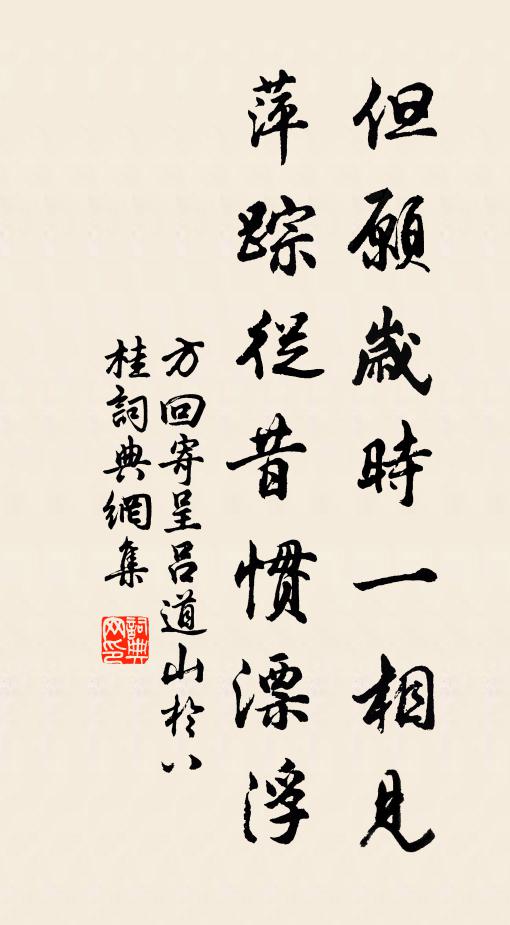 但願歲時一相見
萍踪從昔慣漂浮
方回寄呈呂道山於八
桂詞典網集
詞典
网印